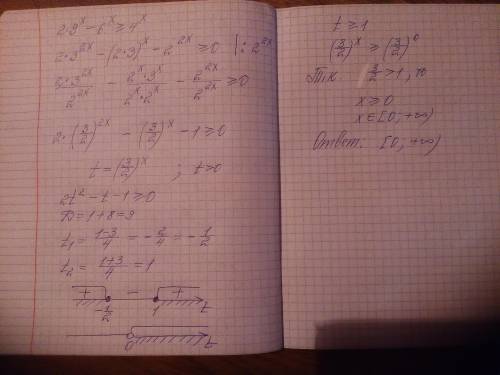 2·9ˣ − 6ˣ ≥ 4ˣ
2·3²ˣ − (2·3)ˣ − 2²ˣ ≥ 0 |: 2²ˣ
2·3²ˣ/2²ˣ − 2ˣ·3ˣ/2ˣ·2ˣ − 2²ˣ/2²ˣ ≥ 0
2·(3/2)²ˣ − (3/2)ˣ − 1 ≥ 0
t = (3/2)ˣ ; t>0
2t² − t − 1 ≥ 0
D = 1+8 = 9
t₁ = (1−3)/4 = −2/4 = −1/2
t₂ = (1+3)/4 = 1
+ − +
−1/2 1 t
0 t
t ≥ 1
(3/2)ˣ ≥ (3/2)⁰
Т.к. 3/2 > 1, то
x ≥ 0
x ∈ [0; +∞)
Ответ: [0; +∞)